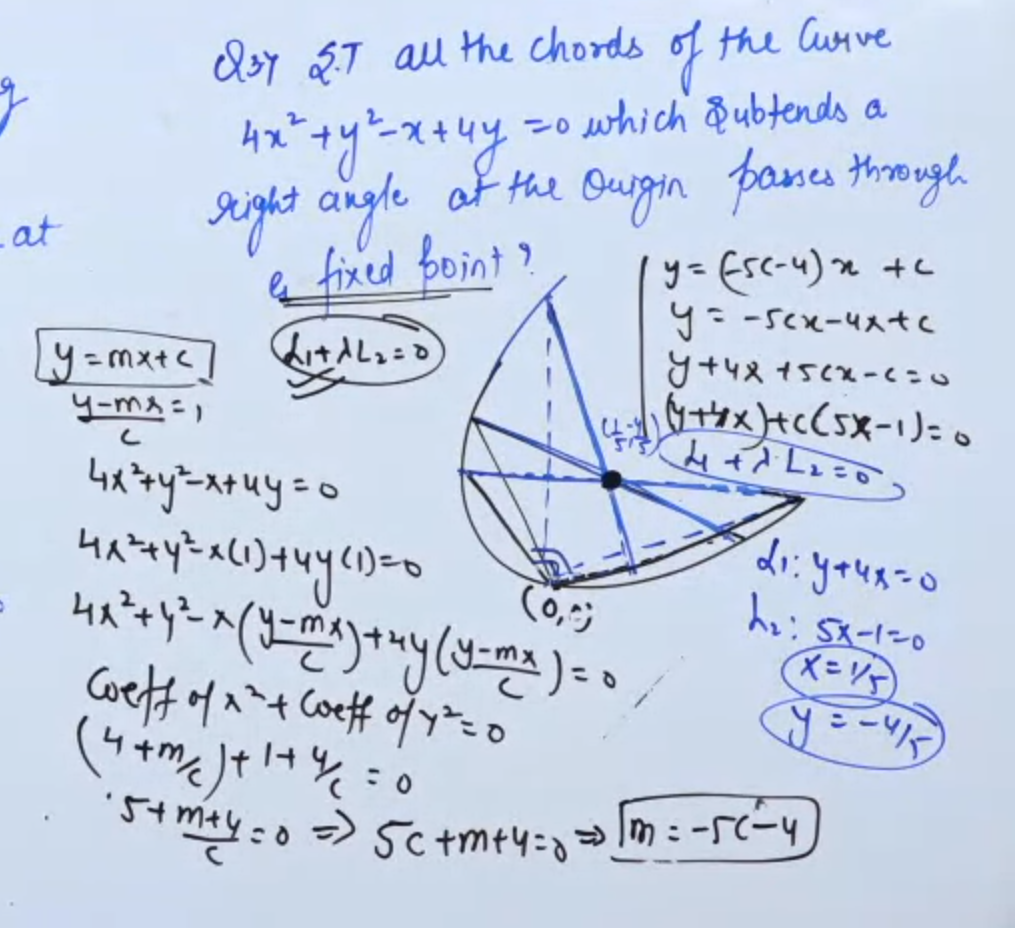 Q3y S.T all the chords of the Curve
4x²+y²-x+4y=0 which Subtends a
right angle at the Ouigin passes through
a fixed point?
at
y=mx+c
y-mx/c=1
L1+λL2=0
4x²+y²-x+4y=0
4x²+y²-x(1)+4y(1)=0
4x²+y²-x(y-mx/c)+4y(y-mx/c)=0
Coeff of x²+Coeff of y²=0
(4+m/c)+1+4/c=0
5+m+4/c=0 => 5c+m+4=0 => m=-5c-4
(0,0)
(1/5,-4/5)
y=(-5c-4)x+c
y=-5cx-4x+c
y+4x+5cx-c=0
(y+4x)+c(5x-1)=0
L1+λL2=0
L1: y+4x=0
L2: 5x-1=0
x=1/5
y=-4/5